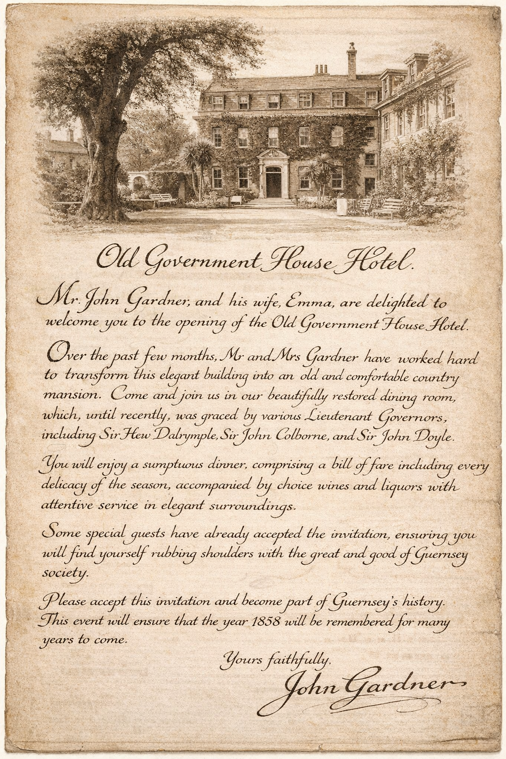 Old Government House Hotel.
Mr. John Gardner, and his wife, Emma, are delighted to
welcome you to the opening of the Old Government House Hotel.
Over the past few months, Mr and Mrs Gardner have worked hard
to transform this elegant building into an old and comfortable country
mansion. Come and join us in our beautifully restored dining room,
which, until recently, was graced by various Lieutenant Governors,
including Sir Hew Dalrymple, Sir John Colborne, and Sir John Doyle.
You will enjoy a sumptuous dinner, comprising a bill of fare including every
delicacy of the season, accompanied by choice wines and liquors with
attentive service in elegant surroundings.
Some special guests have already accepted the invitation, ensuring you
will find yourself rubbing shoulders with the great and good of Guernsey
society.
Please accept this invitation and become part of Guernsey's history.
This event will ensure that the year 1858 will be remembered for many
years to come.
Yours faithfully.
John Gardner